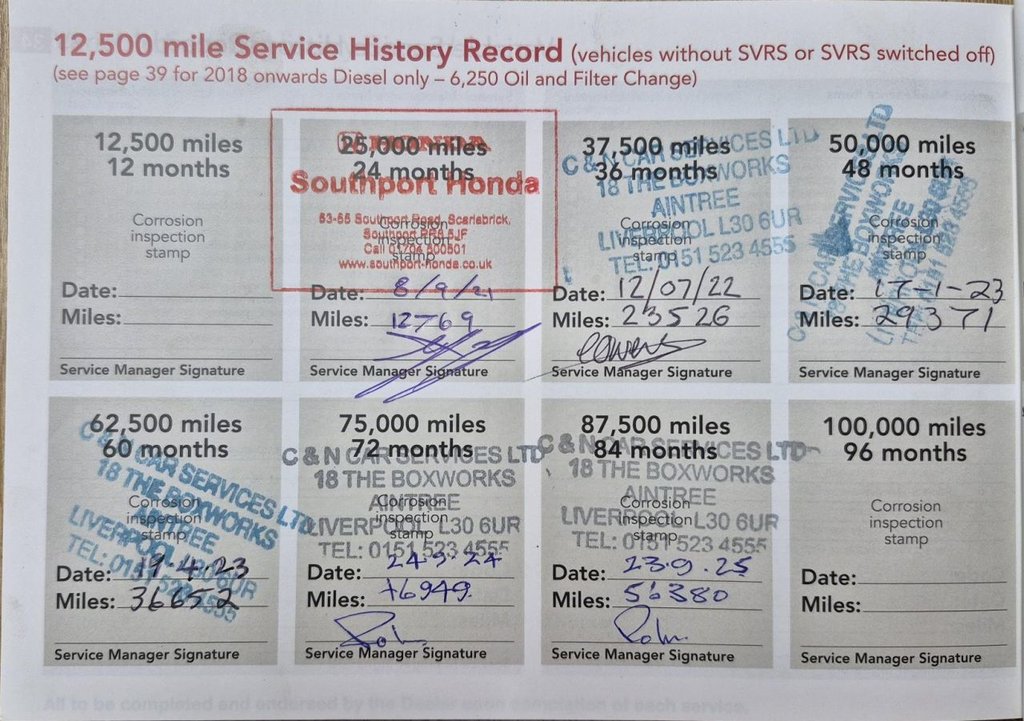 12,500 mile Service History Record (vehicles without SVRS or SVRS switched off)
(see page 39 for 2018 onwards Diesel only – 6,250 Oil and Filter Change)
12,500 miles
12 months
Corrosion
inspection
stamp
Date:
Miles:
Service Manager Signature
25,000 miles
24 months
HONDA
Southport Honda
53-55 Southport Road, Scarisbrick,
Southport PR8 5JF
Call 01704 500501
www.southport-honda.co.uk
Corrosion
inspection
stamp
Date: 8/9/21
Miles: 12769
Service Manager Signature
37,500 miles
36 months
C & N CAR SERVICES LTD
18 THE BOXWORKS
AINTREE
LIVERPOOL L30 6UR
TEL: 0151 523 4555
Corrosion
inspection
stamp
Date: 12/07/22
Miles: 23526
Service Manager Signature
50,000 miles
48 months
Corrosion
inspection
stamp
CAR SERVICES LTD
18 THE BOXWORKS
Date: 17-1-23
Miles: 29371
Service Manager Signature
62,500 miles
60 months
C & N CAR SERVICES LTD
18 THE BOXWORKS
AINTREE
LIVERPOOL L30 6UR
TEL: 0151 523 4555
Corrosion
inspection
stamp
Date: 19.4.23
Miles: 36652
Service Manager Signature
75,000 miles
72 months
C & N CAR SERVICES LTD
18 THE BOXWORKS
AINTREE
LIVERPOOL L30 6UR
TEL: 0151 523 4555
Corrosion
inspection
stamp
Date: 24.9.24
Miles: 46949
Service Manager Signature
87,500 miles
84 months
C & N CAR SERVICES LTD
18 THE BOXWORKS
AINTREE
LIVERPOOL L30 6UR
TEL: 0151 523 4555
Corrosion
inspection
stamp
Date: 23.9.25
Miles: 56380
Service Manager Signature
100,000 miles
96 months
Corrosion
inspection
stamp
Date:
Miles:
Service Manager Signature